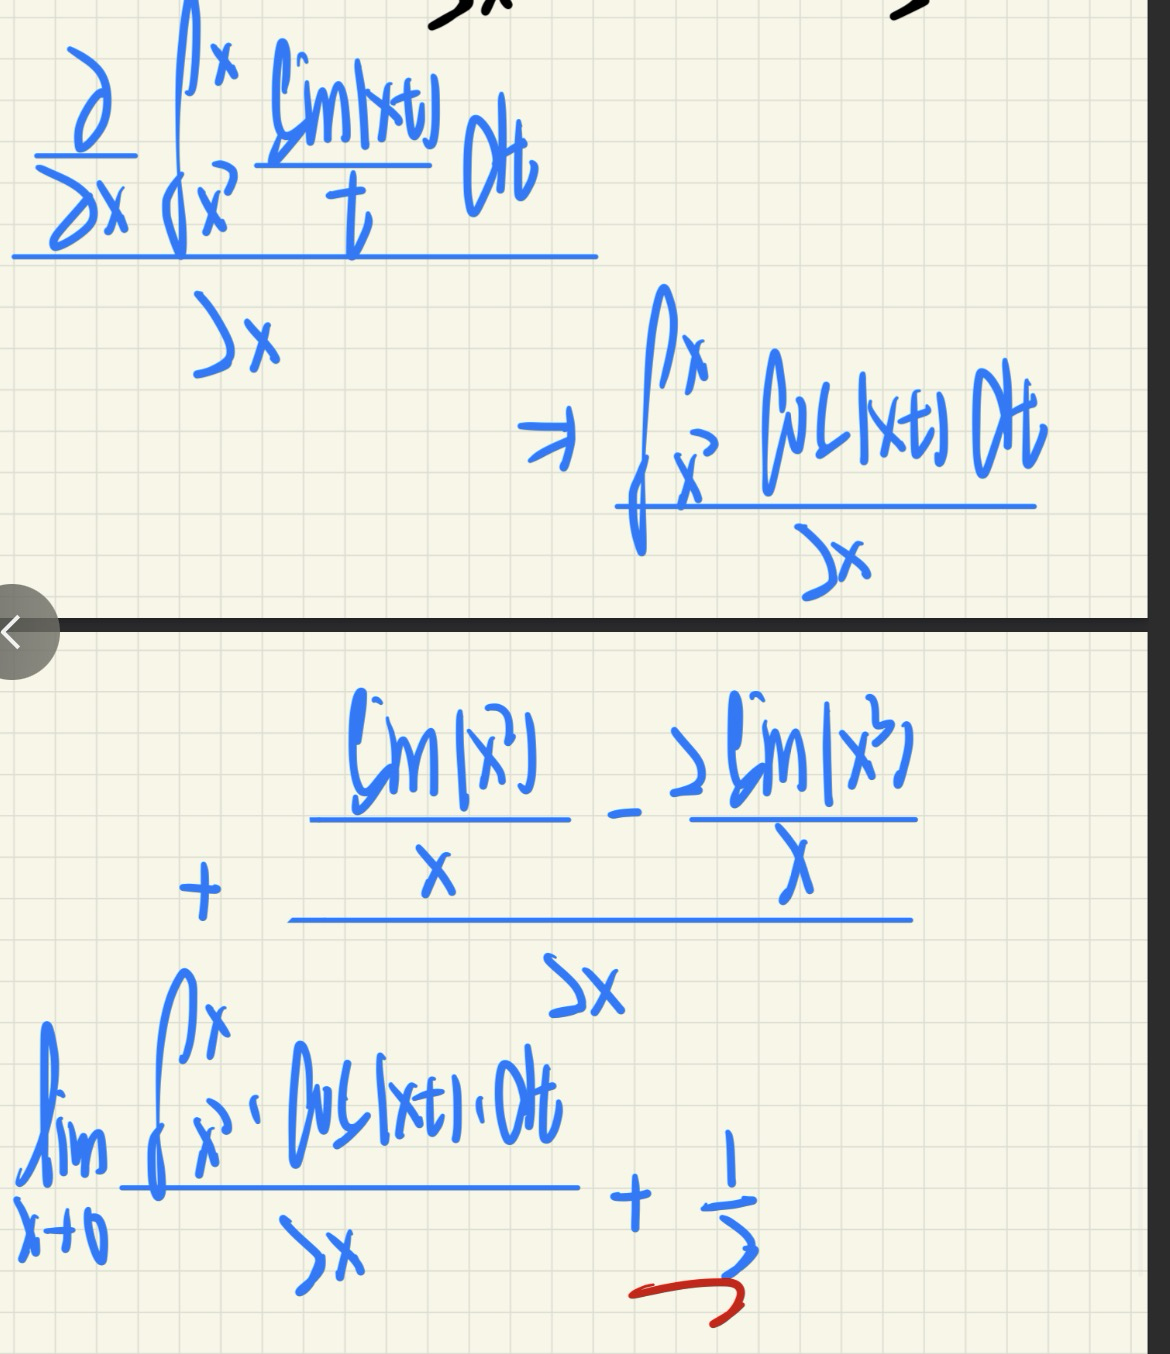 ∂/∂x ∫_{x²}^{x} sin(xt)/t dt
2x
⇒ ∫_{x²}^{x} cos(xt) dt
2x
+ (sin(x²)/x - 2sin(x³)/x)
2x
lim_{x→0} ∫_{x²}^{x} · cos(xt) · dt / 2x + 1/2